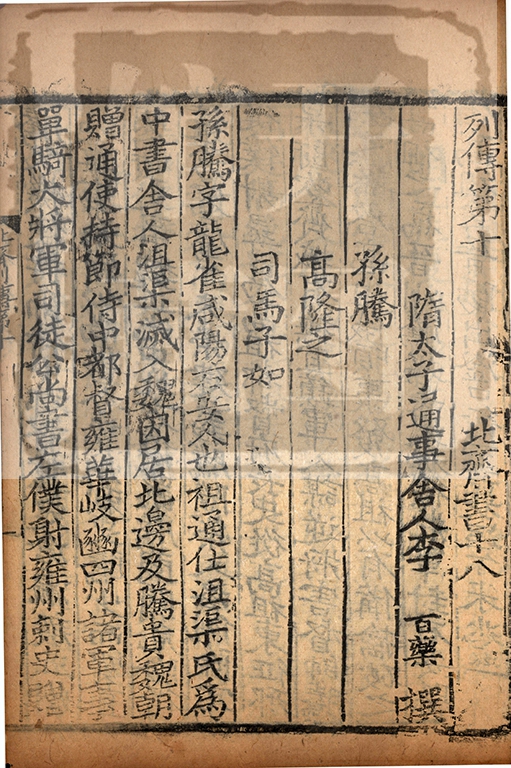 列傳第十 北齊書十八
隋太子通事舍人李 百藥 撰
孫騰
高隆之
司馬子如
孫騰字龍雀咸陽石安人也祖通仕沮渠氏爲
中書舍人沮渠滅入魏因居北邊及騰貴魏朝
贈通使持節侍中都督雍華岐豳四州諸軍事
單騎大將軍司徒公尚書左僕射雍州刺史贈